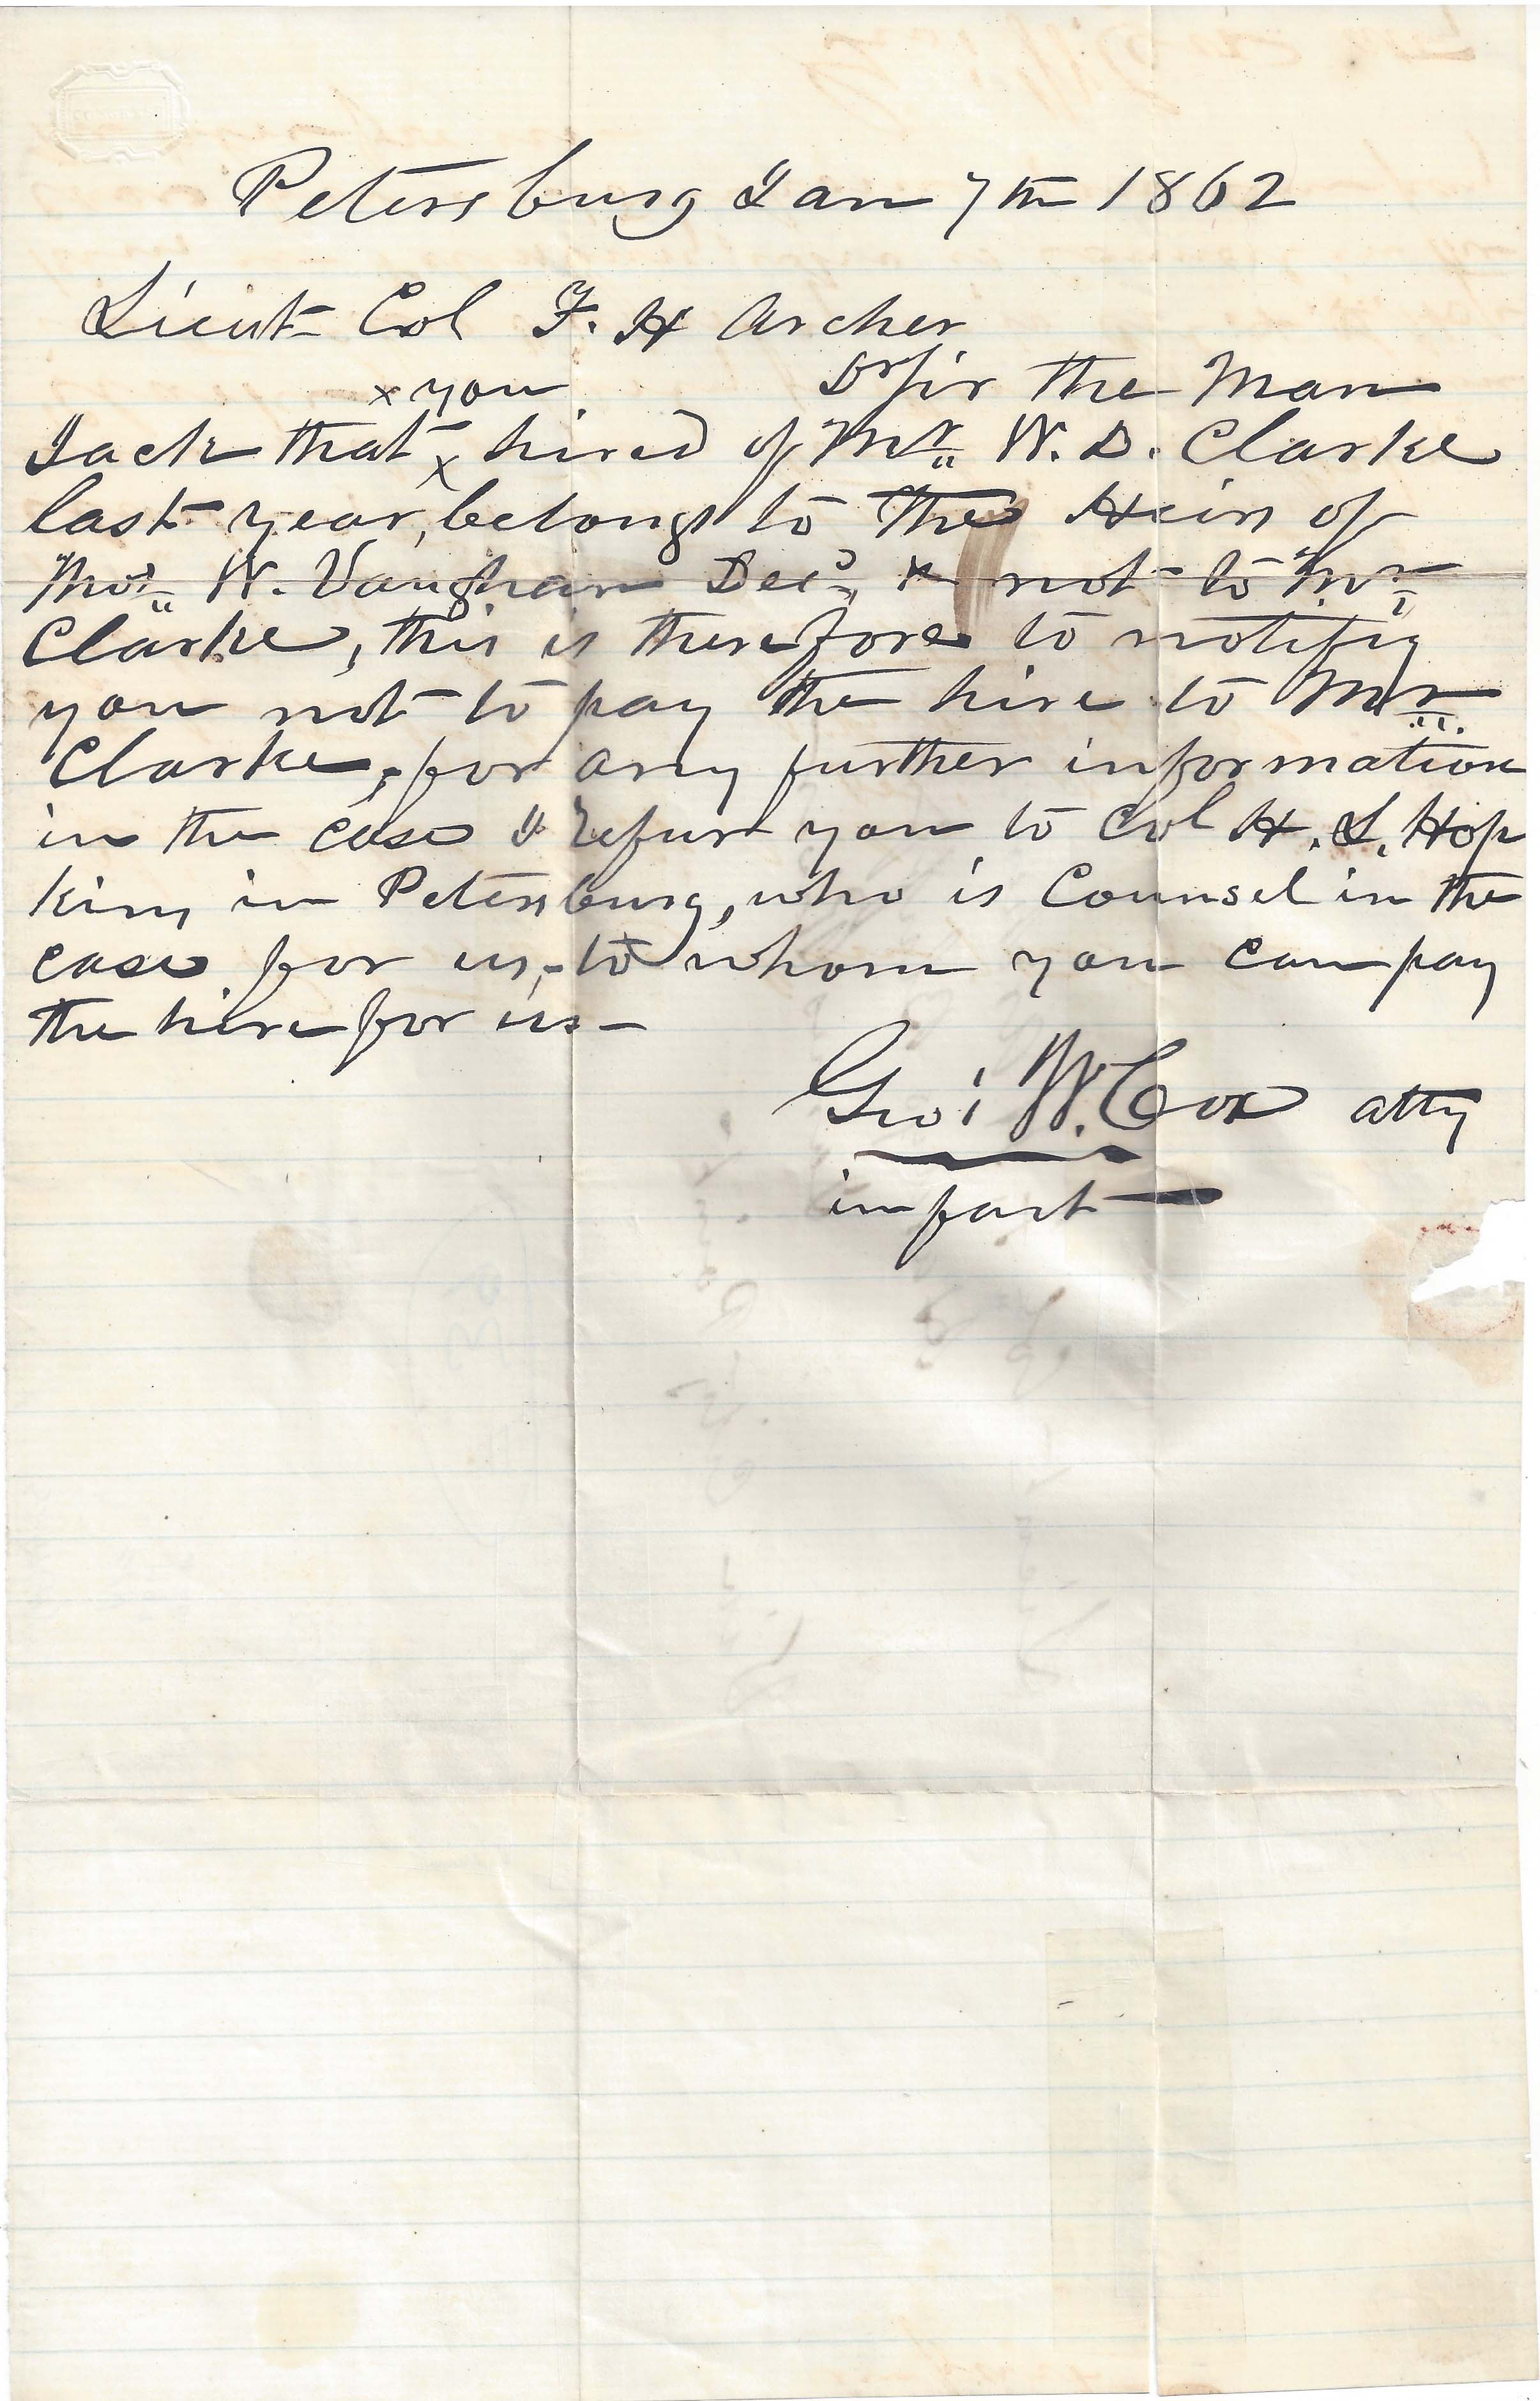 Petersburg Jan 7th 1862
Lieut Col F. H Archer
x you Dr Sir the Man
Jack that x hired of Mr. W. D. Clarke
last year, belongs to the Heirs of
Thos. W. Vaughan Decd, & not to Mr
Clarke, this is therefore to notify
you not to pay the hire to Mr
Clarke, for any further information
in the case I refer you to Col H. L. Hop
kins in Petersburg, who is Counsel in the
case for us, - to whom you can pay
the hire for us -
Geo: W. Cox atty
in fact